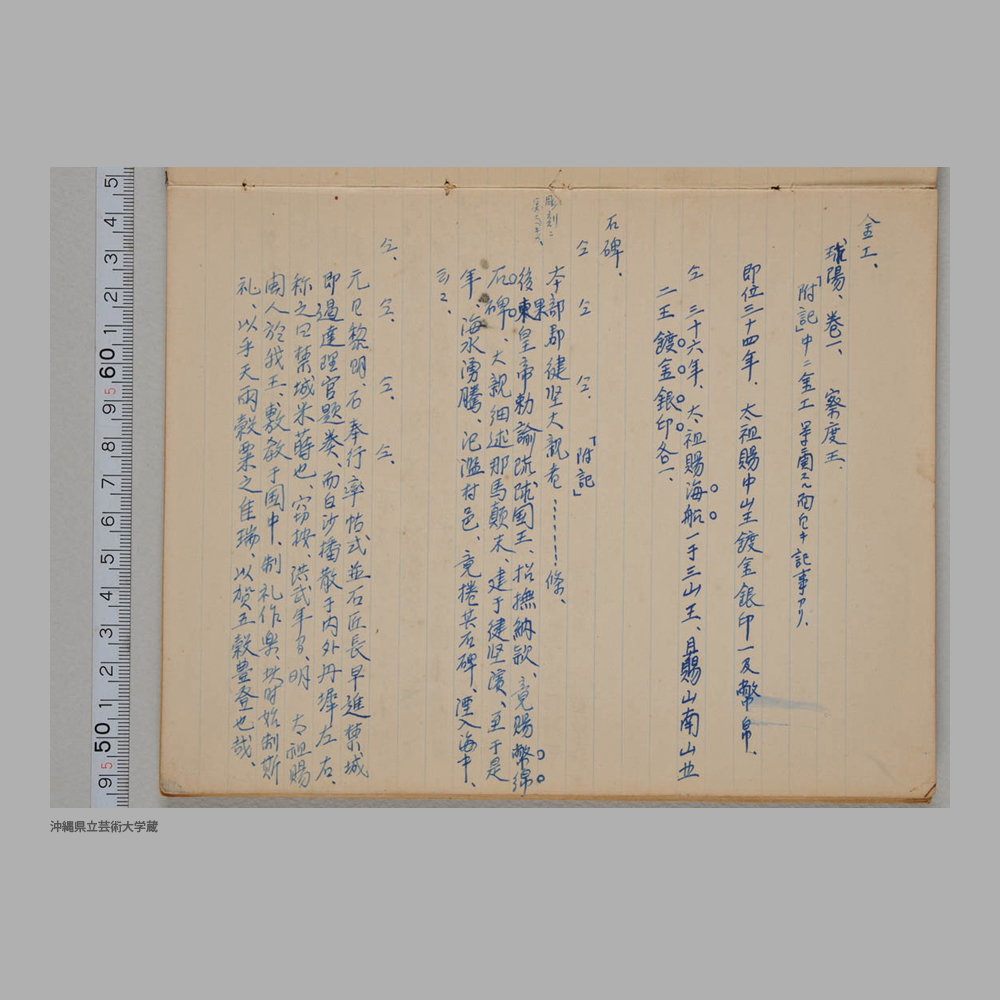 金工、
球陽、巻一、 察度王、
「附記」中ニ金工ノ
記事アリ、
即位三十四年、太祖賜中山王鍍金銀印一及幣帛、
仝 三十六年、太祖賜海船一于三山王、且賜山南山北
二王鍍金銀印各一、
石碑、
彫刻ニ
仝 仝 仝、 「附記」
本部郡健堅大親者………條、
後果皇帝勅諭琉球国王、招撫納款、竟賜幣綿
石碑、大親細述那馬顛末、建于健堅濱、至于是
年、海水湧騰、氾濫村邑、竟捲其石碑、湮入海中、
云々
仝、 仝、 仝、 仝、
元日黎明、石奉行率帖式並石匠長早進禁城
即過達理官題奏、而白沙播散于内外丹墀左右、
称之曰禁城米蒔也、窃按、洪武年間、明 太祖賜
閩人於我王、敷教于国中、制礼作楽、此時始創斯
礼、以乎天雨穀粟之佳瑞、以賀五穀豊登也哉、
5 1 2 3 4 60 1 2 3 4 5 6 7 8 9 50 1 2 3 4 5 6 7 8 9
沖縄県立芸術大学蔵